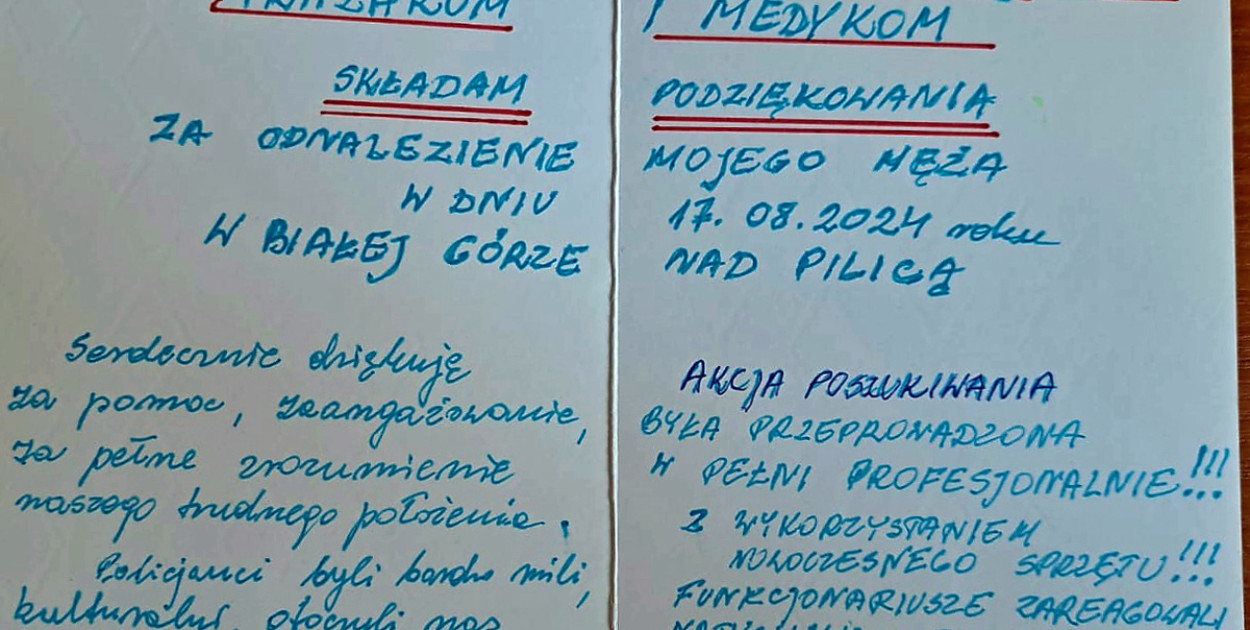 I MEDYKOM
SKŁADAM PODZIĘKOWANIA
ZA ODNALEZIENIE MOJEGO MĘŻA
W DNIU 17.08.2024 roku
W BIAŁEJ GÓRZE NAD PILICĄ
Serdecznie dziękuję
za pomoc, zaangażowanie,
za pełne zrozumienie
naszego trudnego położenia.
Policjanci byli bardzo mili,
kulturalni, otoczyli nas
AKCJA POSZUKIWANIA
BYŁA PRZEPROWADZONA
W PEŁNI PROFESJONALNIE!!!
Z WYKORZYSTANIEM
NOWOCZESNEGO SPRZĘTU!!!
FUNKCJONARIUSZE ZAREAGOWALI